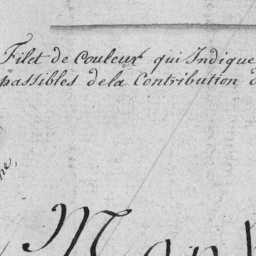 Filet de Couleur qui Indique
passibles dela Contribution